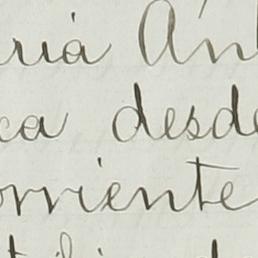 ria Án
ca desde
orriente